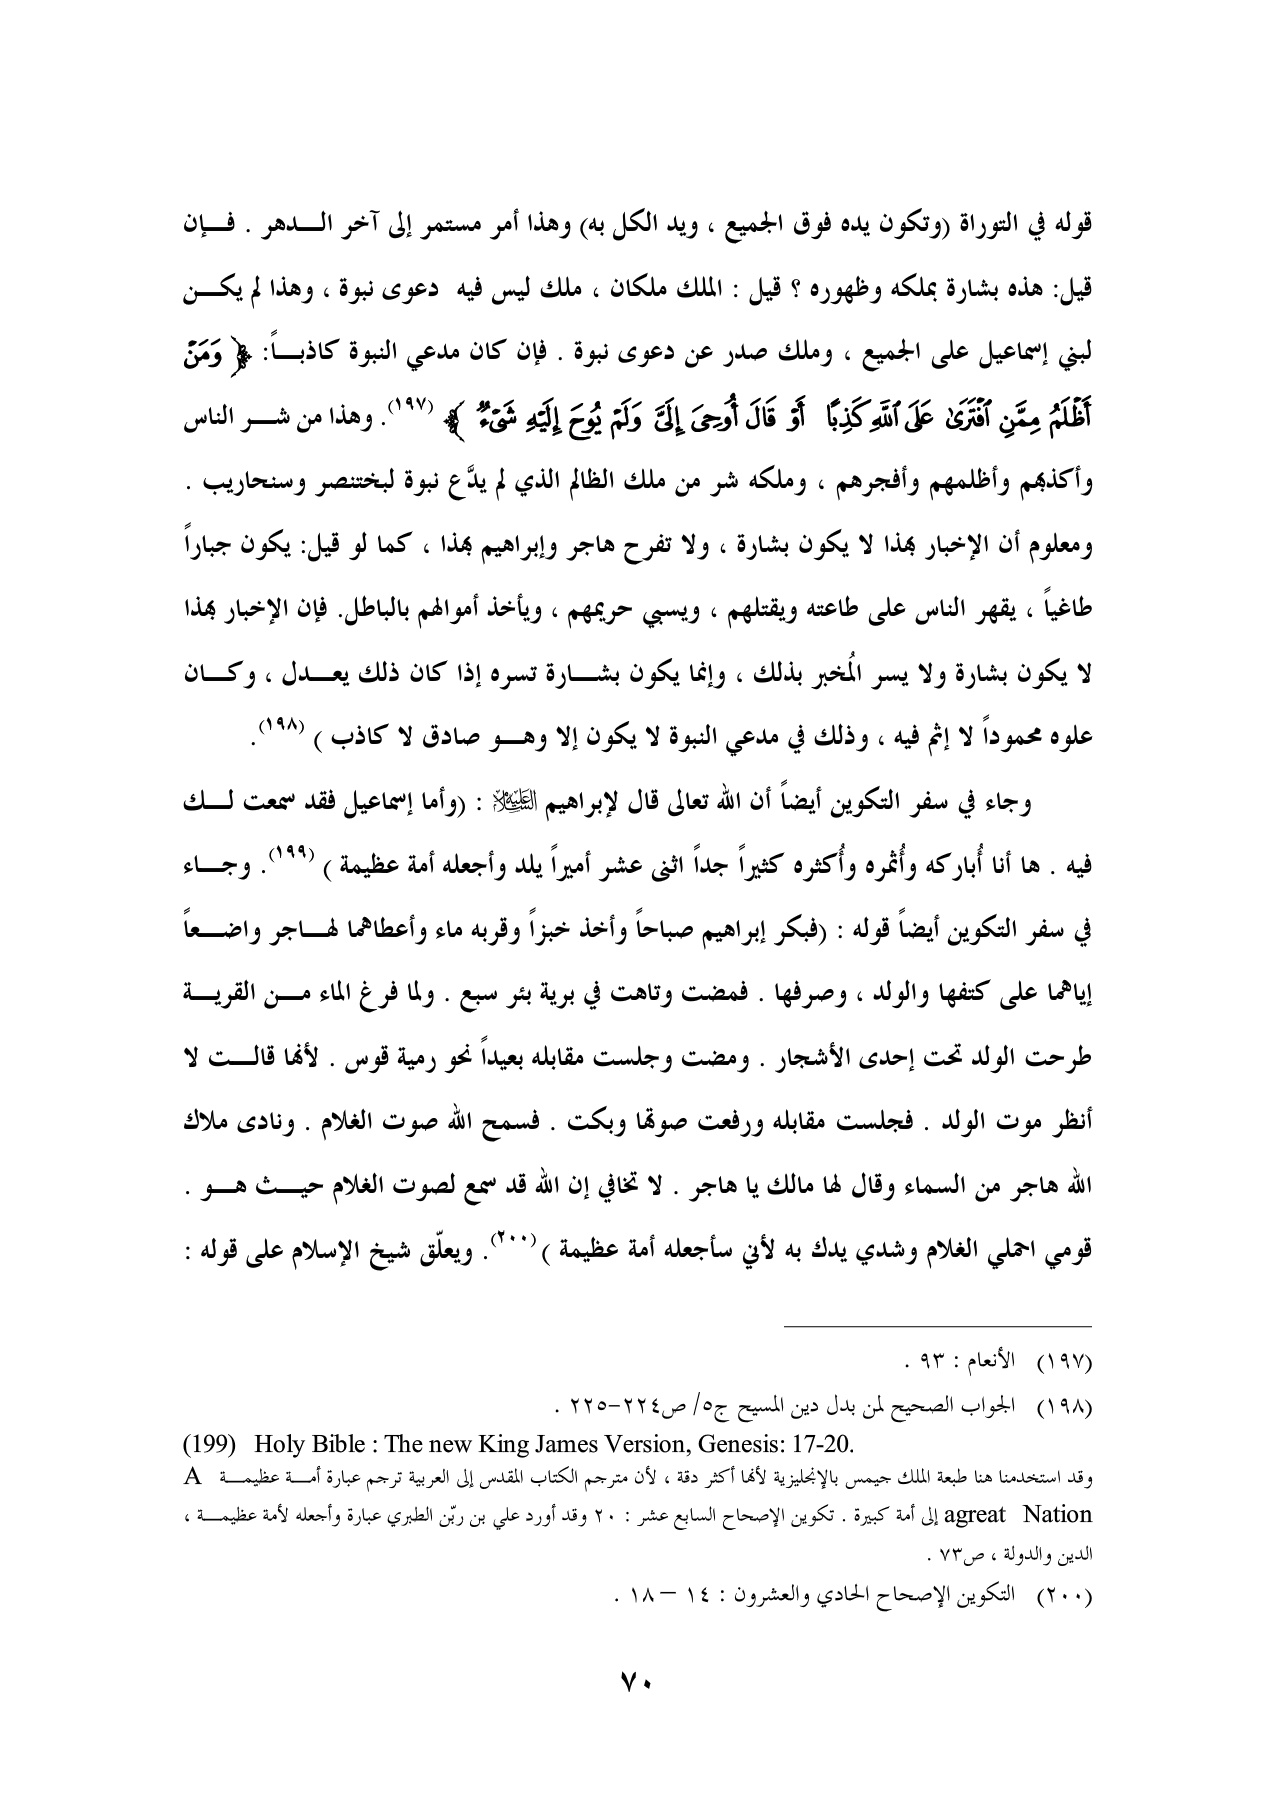 قوله في التوراة (وتكون يده فوق الجميع ، ويد الكل به) وهذا أمر مستمر إلى آخر الـــدهر . فـــإن
قيل: هذه بشارة بملكه وظهوره ؟ قيل : الملك ملكان ، ملك ليس فيه دعوى نبوة ، وهذا لم يكـــن
لبني إسماعيل على الجميع ، وملك صدر عن دعوى نبوة . فإن كان مدعي النبوة كاذبـــاً: ﴿ وَمَنْ
أَظْلَمُ مِمَّنِ ٱفْتَرَىٰ عَلَى ٱللَّهِ كَذِبًا أَوْ قَالَ أُوحِىَ إِلَىَّ وَلَمْ يُوحَ إِلَيْهِ شَىْءٌ ﴾ (١٩٧). وهذا من شـــر الناس
وأكذبهم وأظلمهم وأفجرهم ، وملكه شر من ملك الظالم الذي لم يدَّع نبوة لبختنصر وسنحاريب .
ومعلوم أن الإخبار بهذا لا يكون بشارة ، ولا تفرح هاجر وإبراهيم بهذا ، كما لو قيل: يكون جباراً
طاغياً ، يقهر الناس على طاعته ويقتلهم ، ويسبي حريمهم ، ويأخذ أموالهم بالباطل. فإن الإخبار بهذا
لا يكون بشارة ولا يسر المُخبر بذلك ، وإنما يكون بشـــارة تسره إذا كان ذلك يعـــدل ، وكـــان
علوه محموداً لا إثم فيه ، وذلك في مدعي النبوة لا يكون إلا وهـــو صادق لا كاذب ) (١٩٨).
وجاء في سفر التكوين أيضاً أن الله تعالى قال لإبراهيم عليه السلام : (وأما إسماعيل فقد سمعت لـــك
فيه . ها أنا أُباركه وأُثمره وأُكثره كثيراً جداً اثنى عشر أميراً يلد وأجعله أمة عظيمة ) (١٩٩). وجـــاء
في سفر التكوين أيضاً قوله : (فبكر إبراهيم صباحاً وأخذ خبزاً وقربه ماء وأعطاهما لهـــاجر واضـــعاً
إياهما على كتفها والولد ، وصرفها . فمضت وتاهت في برية بئر سبع . ولما فرغ الماء مـــن القربـــة
طرحت الولد تحت إحدى الأشجار . ومضت وجلست مقابله بعيداً نحو رمية قوس . لأنها قالـــت لا
أنظر موت الولد . فجلست مقابله ورفعت صوتها وبكت . فسمح الله صوت الغلام . ونادى ملاك
الله هاجر من السماء وقال لها مالك يا هاجر . لا تخافي إن الله قد سمع لصوت الغلام حيـــث هـــو .
قومي احملي الغلام وشدي يدك به لأني سأجعله أمة عظيمة )(٢٠٠). ويعلّق شيخ الإسلام على قوله :
(١٩٧) الأنعام : ٩٣ .
(١٩٨) الجواب الصحيح لمن بدل دين المسيح ج٥/ ص٢٢٤-٢٢٥ .
(199) Holy Bible : The new King James Version, Genesis: 17-20.
وقد استخدمنا هنا طبعة الملك جيمس بالإنجليزية لأنها أكثر دقة ، لأن مترجم الكتاب المقدس إلى العربية ترجم عبارة أمـــة عظيمـــة A
agreat Nation إلى أمة كبيرة . تكوين الإصحاح السابع عشر : ٢٠ وقد أورد علي بن ربّن الطبري عبارة وأجعله لأمة عظيمـــة ،
الدين والدولة ، ص٧٣ .
(٢٠٠) التكوين الإصحاح الحادي والعشرون : ١٤ – ١٨ .
٧٠